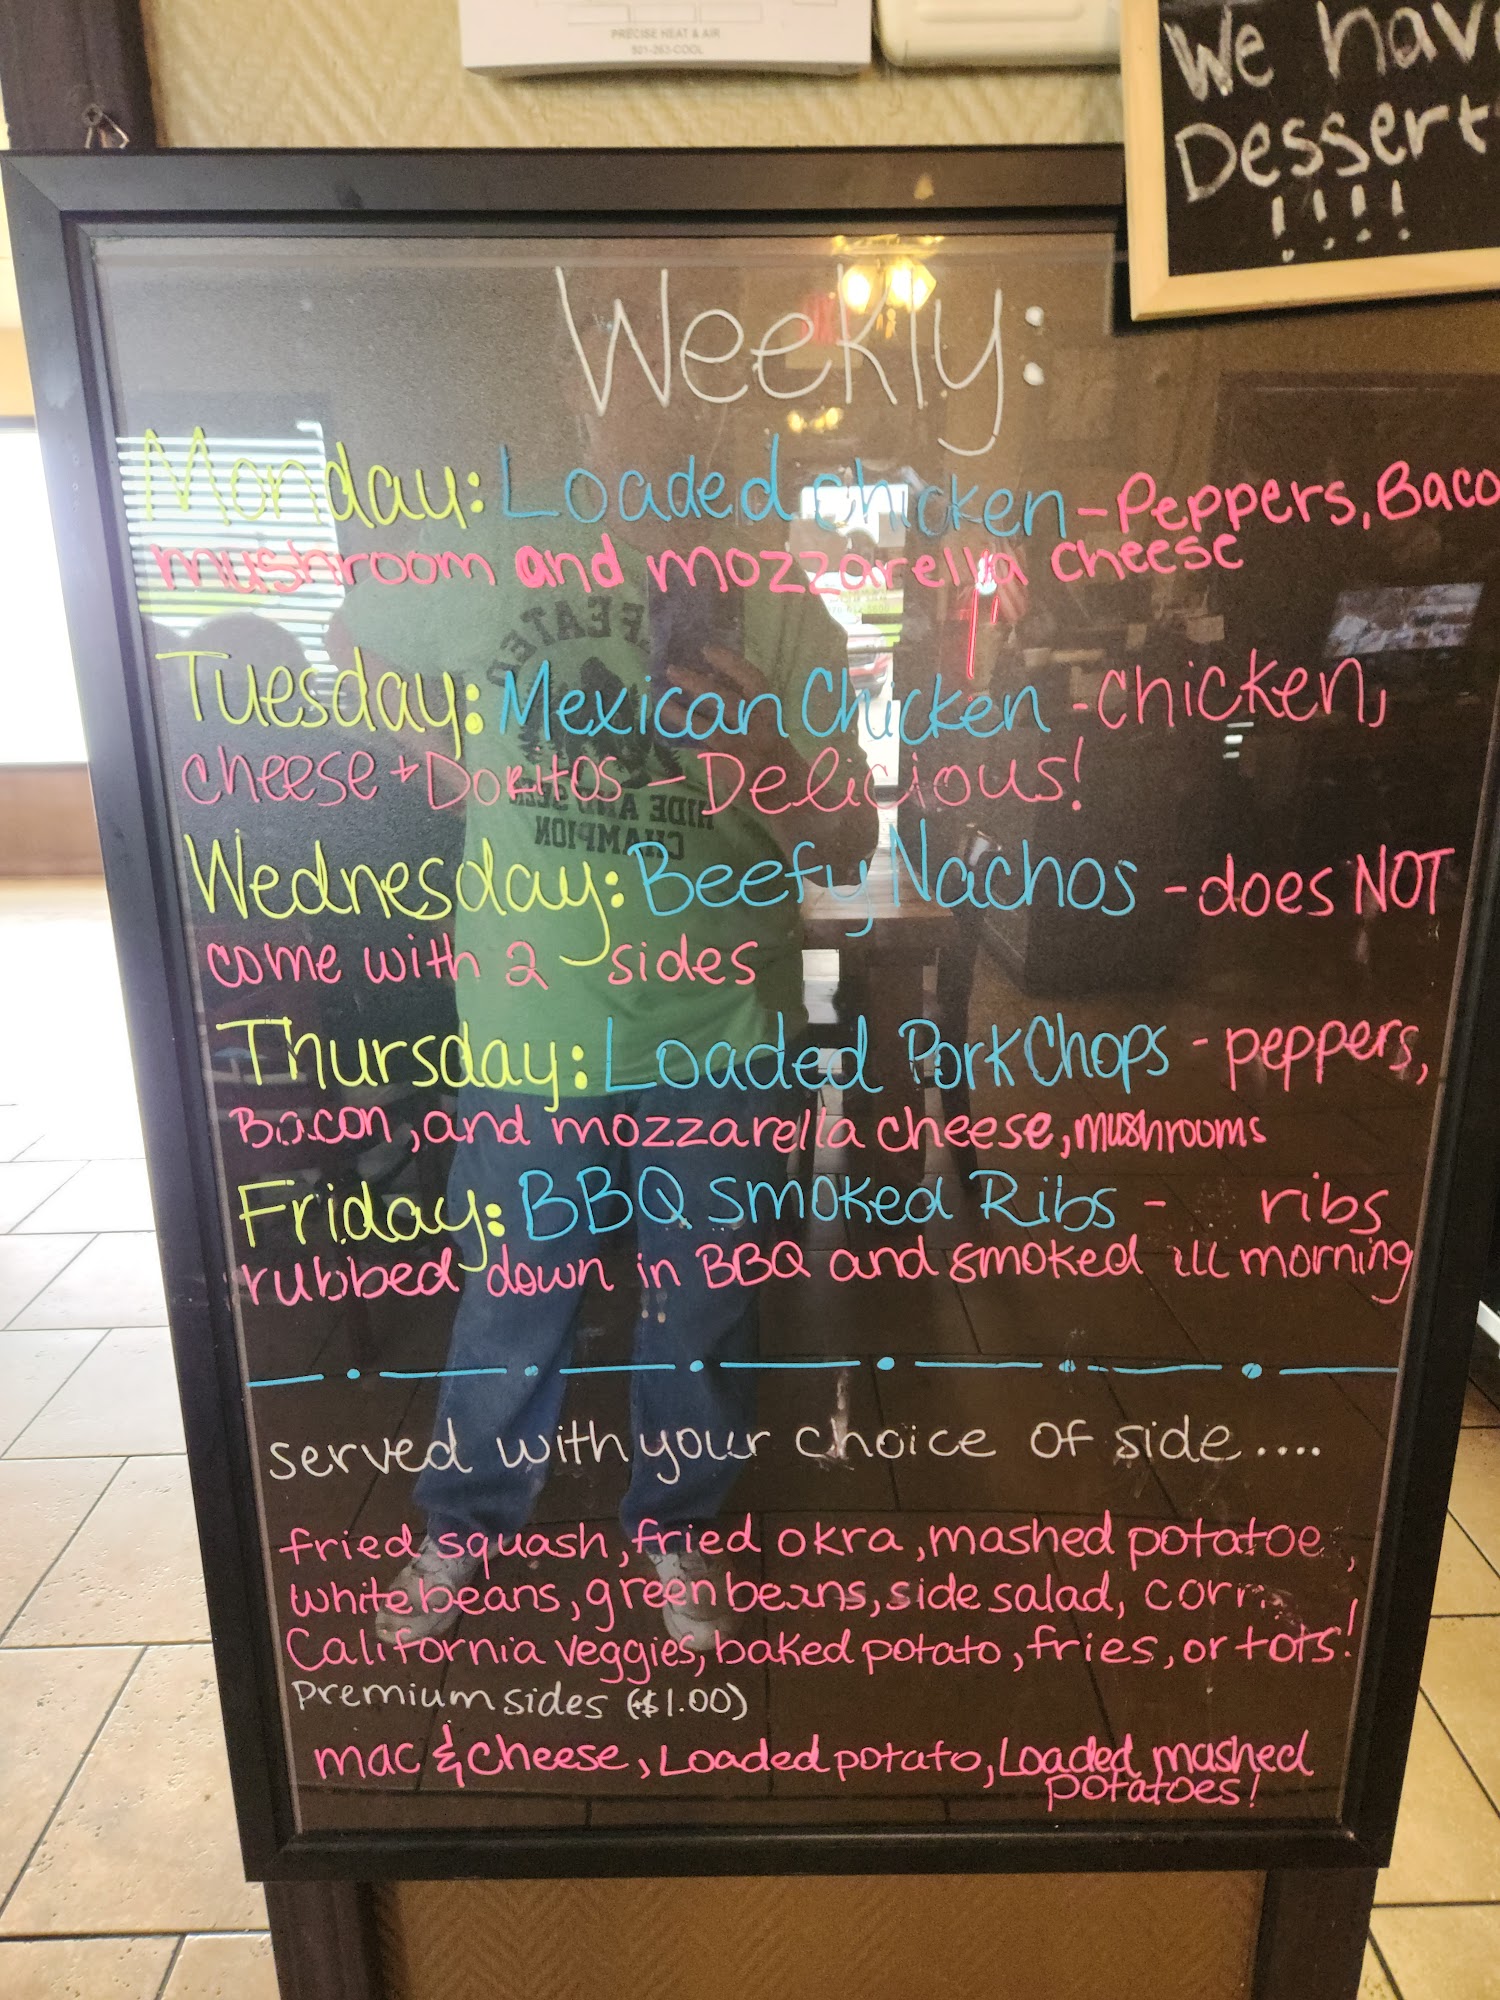 PRECISE HEAT & AIR
501-263-COOL
We hav
Dessert
!!!!
Weekly:
Monday: Loaded chicken - Peppers, Baco
mushroom and mozzarella cheese
Tuesday: Mexican Chicken - chicken,
cheese + Doritos - Delicious!
Wednesday: Beefy Nachos - does NOT
come with 2 sides
Thursday: Loaded Pork Chops - peppers,
Bacon, and mozzarella cheese, mushrooms
Friday: BBQ smoked Ribs - ribs
rubbed down in BBQ and smoked all morning
served with your choice of side....
fried squash, fried okra, mashed potatoe,
white beans, green beans, side salad, corn
California veggies, baked potato, fries, or tots!
Premium sides (+$1.00)
mac & cheese, Loaded potato, Loaded mashed
potatoes!
HIDE AND SEEK
CHAMPION